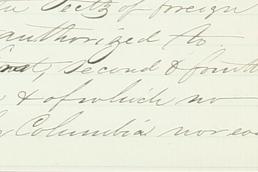 Secty of foreign
authorized to
First, second & fourth
& of which no
Columbia nor